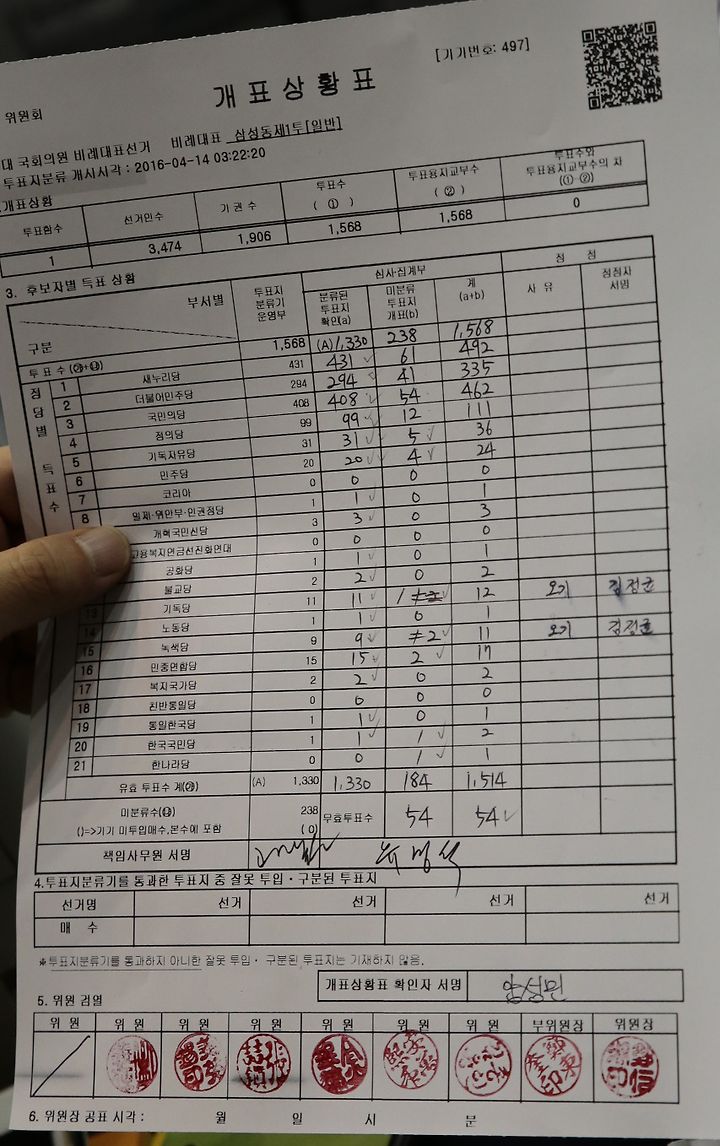 [기기번호: 497]
개표상황표
위원회
대 국회의원 비례대표선거 비례대표 삼성동제1투[일반]
투표지분류 개시시각 : 2016-04-14 03:22:20
개표상황
투표함수 선거인수 기권수 투표수 (①) 투표용지교부수 (②) 투표수와 투표용지교부수의 차 (①-②)
1 3,474 1,906 1,568 1,568 0
3. 후보자별 득표 상황
부서별 투표지 분류기 운영부 심사·집계부 정 정
구분 분류된 투표지 확인(a) 미분류 투표지 개표(b) 계 (a+b) 사 유 정정자 서명
투표수 (㉮+㉯) 1,568 (A) 1,330 238 1,568
정당별 득표수
1 새누리당 431 431 61 492
2 더불어민주당 294 294 41 335
3 국민의당 408 408 54 462
4 정의당 99 99 12 111
5 기독자유당 31 31 5 36
6 민주당 20 20 4 24
7 코리아 0 0 0 0
8 일제·위안부·인권정당 1 1 0 1
개혁국민신당 3 3 0 3
고용복지연금선진화연대 0 0 0 0
공화당 1 1 0 1
불교당 2 2 0 2
13 기독당 11 11 1 12 오기 김정균
14 노동당 1 1 0 1
15 녹색당 9 9 2 11 오기 김정균
16 민중연합당 15 15 2 17
17 복지국가당 2 2 0 2
18 친반통일당 0 0 0 0
19 통일한국당 1 1 0 1
20 한국국민당 1 1 1 2
21 한나라당 0 0 1 1
유효 투표수 계(㉮) (A) 1,330 1,330 184 1,514
미분류수(㉯) 238 무효투표수 54 54
()=>기기 미투입매수,본수에 포함 ( 0)
책임사무원 서명
4.투표지분류기를 통과한 투표지 중 잘못 투입·구분된 투표지
선거명 선거 선거 선거 선거
매 수
※투표지분류기를 통과하지 아니한 잘못 투입· 구분된 투표지는 기재하지 않음.
개표상황표 확인자 서명
5. 위원 검열
위 원 위 원 위 원 위 원 위 원 위 원 위 원 부위원장 위원장
6. 위원장 공표 시각 : 월 일 시 분